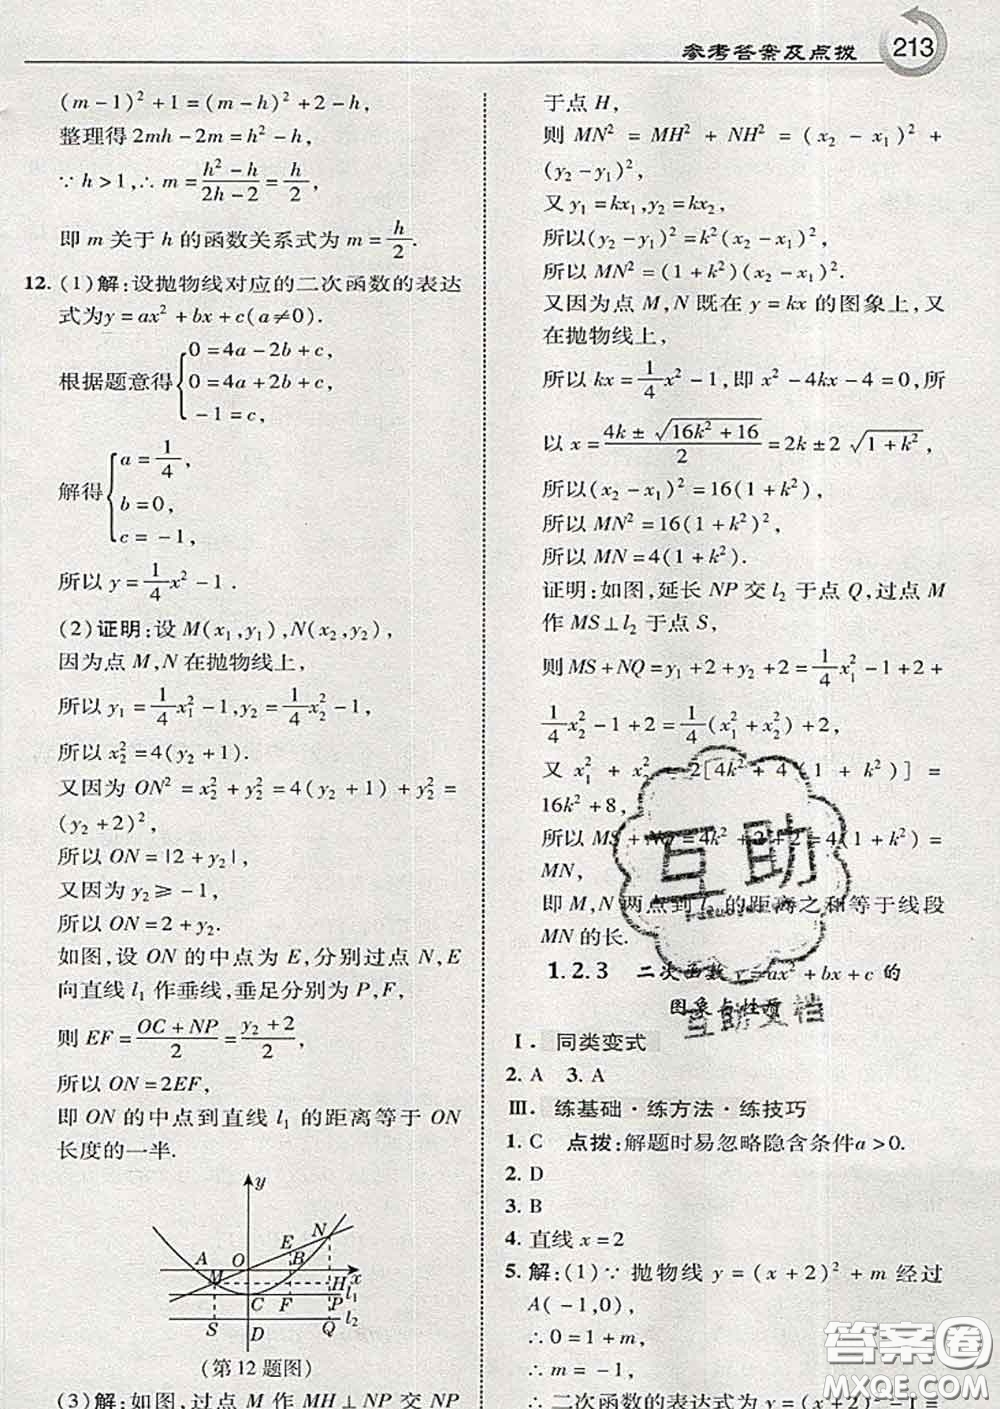 参考答案及点拨 213
(m-1)²+1=(m-h)²+2-h,
整理得2mh-2m=h²-h,
∵h>1,∴m=\frac{h²-h}{2h-2}=\frac{h}{2},
即 m 关于 h 的函数关系式为 m=\frac{h}{2}.
12. (1)解:设抛物线对应的二次函数的表达
式为y=ax²+bx+c(a≠0).
根据题意得{0=4a-2b+c,
0=4a+2b+c,
-1=c,
解得{a=\frac{1}{4},
b=0,
c=-1,
所以 y=\frac{1}{4}x²-1.
(2)证明:设 M(x₁,y₁),N(x₂,y₂),
因为点 M,N 在抛物线上,
所以 y₁=\frac{1}{4}x₁²-1,y₂=\frac{1}{4}x₂²-1,
所以 x₂²=4(y₂+1).
又因为 ON²=x₂²+y₂²=4(y₂+1)+y₂²=
(y₂+2)²,
所以 ON=|2+y₂|,
又因为 y₂≥-1,
所以 ON=2+y₂.
如图,设 ON 的中点为 E,分别过点 N,E
向直线 l₁ 作垂线,垂足分别为 P,F,
则 EF=\frac{OC+NP}{2}=\frac{y₂+2}{2},
所以 ON=2EF,
即 ON 的中点到直线 l₁ 的距离等于 ON
长度的一半.
y
N
E
A O B
M H x
l₁
C F P
l₂
S D Q
(第12题图)
(3)解:如图,过点 M 作 MH⊥NP 交 NP
于点 H,
则 MN²=MH²+NH²=(x₂-x₁)²+
(y₂-y₁)²,
又 y₁=kx₁,y₂=kx₂,
所以(y₂-y₁)²=k²(x₂-x₁)²,
所以 MN²=(1+k²)(x₂-x₁)².
又因为点 M,N 既在 y=kx 的图象上,又
在抛物线上,
所以 kx=\frac{1}{4}x²-1,即 x²-4kx-4=0,所
以 x=\frac{4k±\sqrt{16k²+16}}{2}=2k±2\sqrt{1+k²},
所以(x₂-x₁)²=16(1+k²),
所以 MN²=16(1+k²)²,
所以 MN=4(1+k²).
证明:如图,延长 NP 交 l₂ 于点 Q,过点 M
作 MS⊥l₂ 于点 S,
则 MS+NQ=y₁+2+y₂+2=\frac{1}{4}x₁²-1+2+
\frac{1}{4}x₂²-1+2=\frac{1}{4}(x₁²+x₂²)+2,
又 x₁²+x₂²=2[4k²+4(1+k²)]=
16k²+8,
所以 MS+NQ=4k²+2+2=4(1+k²)=
MN,
即 M,N 两点到 l₂ 的距离之和等于线段
MN 的长.
1.2.3 二次函数 y=ax²+bx+c 的
图象与性质
Ⅰ. 同类变式
2. A 3. A
Ⅲ. 练基础·练方法·练技巧
1. C 点拨:解题时易忽略隐含条件a>0.
2. D
3. B
4. 直线 x=2
5. 解:(1)∵抛物线 y=(x+2)²+m 经过
A(-1,0),
∴0=1+m,
∴m=-1,
∴二次函数的表达式为 y=(x+2)²-1=
互助
互助文档
答案圈
MXQE.COM